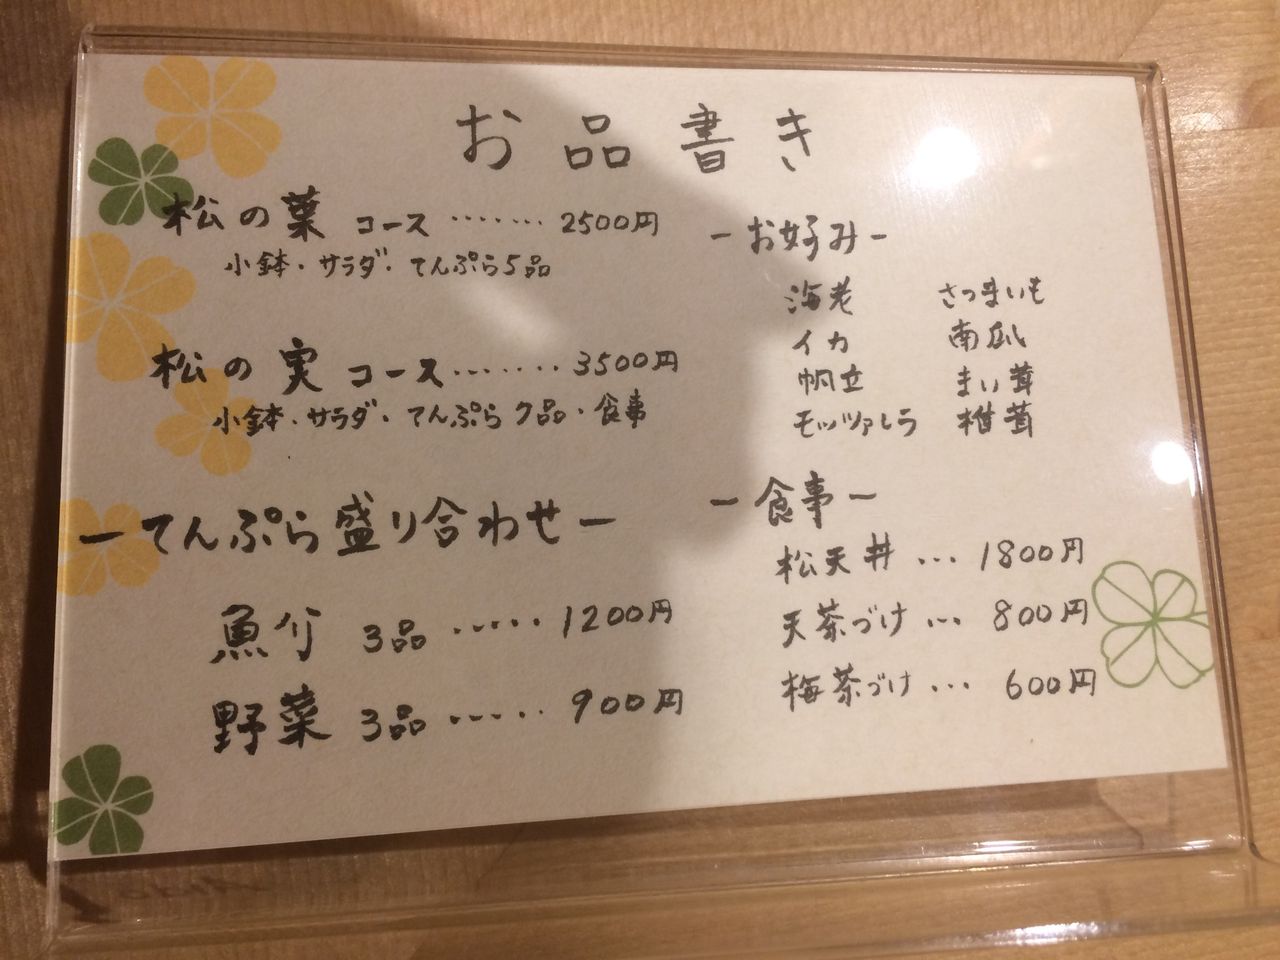 お品書き
松の葉 コース ・・・・・・・ 2500円
小鉢・サラダ・てんぷら5品
松の実 コース・・・・・・・ 3500円
小鉢・サラダ・てんぷら7品・食事
ーてんぷら盛り合わせー
魚介 3品 ・・・・・・ 1200円
野菜 3品 ・・・・・・ 900円
ーお好みー
海老 さつまいも
イカ 南瓜
帆立 まい茸
モッツァレラ 椎茸
ー食事ー
松天丼 ・・・ 1800円
天茶づけ ・・・ 800円
梅茶づけ ・・・ 600円